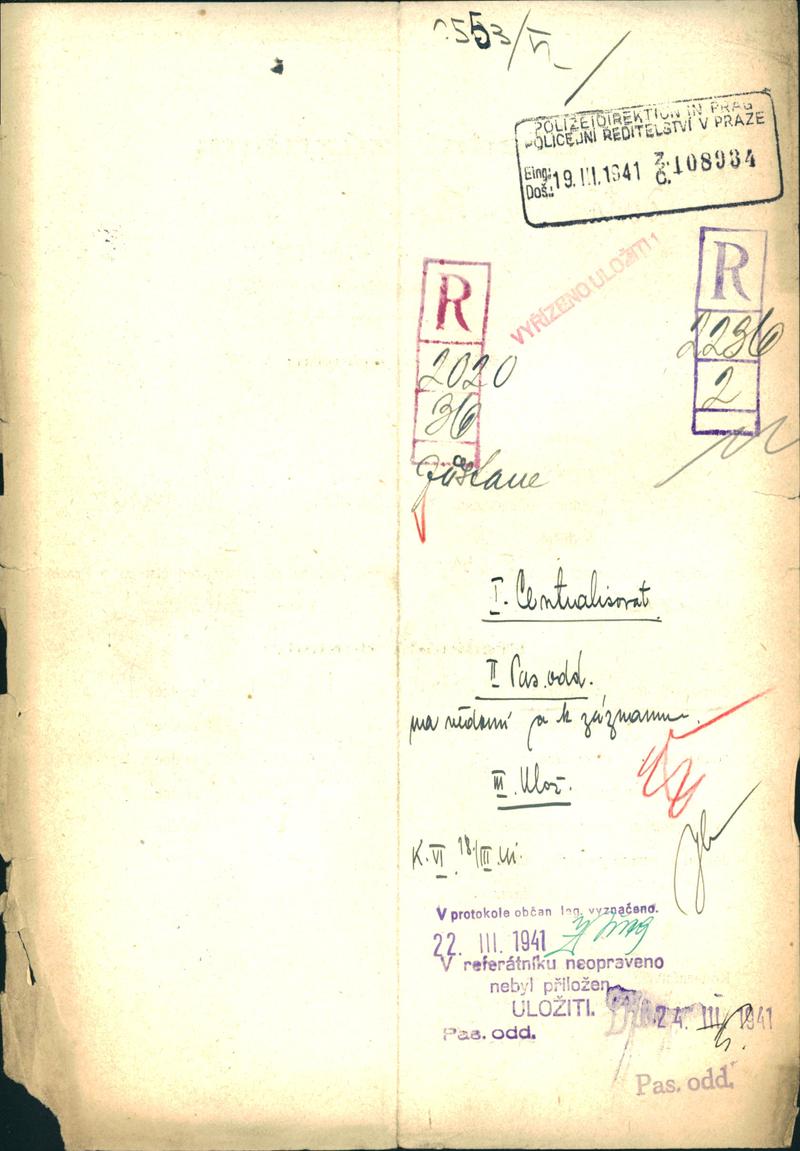 553/VI
POLIZEIDIREKTION IN PRAG
POLICEJNÍ ŘEDITELSTVÍ V PRAZE
Eing.: Došl.: 19. III. 1941 Z. Č. 108934
VYŘÍZENO ULOŽITI
R
2020
36
R
2236
2
zůstane
I. Centralisovat
II Pas. odd.
na vědomí a k záznamu.
III. Ulož.
K. VI 18./III
V protokole občan leg. vyznačeno.
22. III. 1941
V referátníku neopraveno
nebyl přiložen
ULOŽITI.
24. III. 1941
Pas. odd.
Pas. odd.